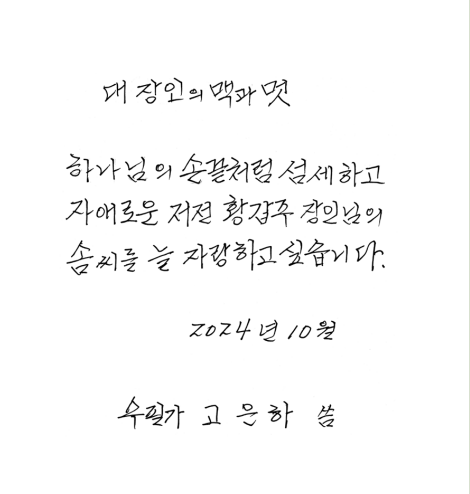 대 장인의 맥과 멋
하나님의 손끝처럼 섬세하고
자애로운 저전 황갑주 장인님의
솜씨를 늘 자랑하고싶습니다.
2024년 10월
수필가 고 은 하 씀